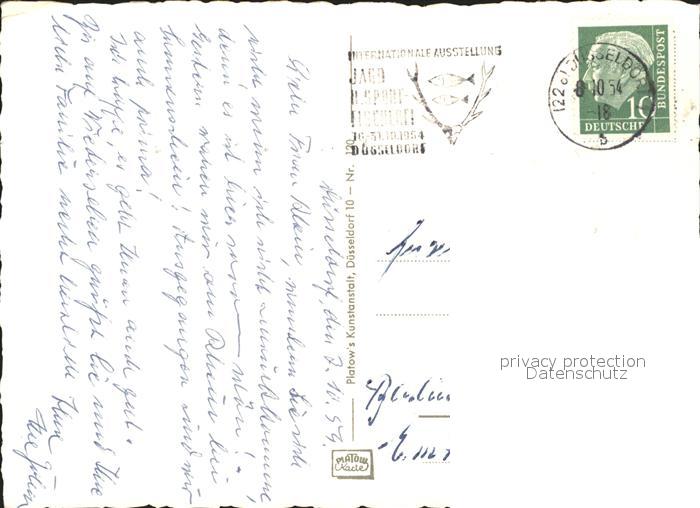 Düsseldorf, den 7. 10. 54.
Liebe Frau Klein, wundern Sie sich
nicht wenn ich nicht zurückkomme,
denn es ist hier schön!
Gestern waren wir am Rhein bei
Sonnenschein! Ausgegangen sind wir
auch prima!
Ich hoffe, es geht Ihnen auch gut.
Bis auf Wiedersehen grüßt Sie und Ihre
liebe Familie recht herzlich Ihre
Platow's Kunstanstalt, Düsseldorf 10 – Nr. 120
PLATOW
Karte
INTERNATIONALE AUSSTELLUNG
JAGD
U. SPORT-
FISCHEREI
16.-31.10.1954
DÜSSELDORF
(22a) DÜSSELDORF
10 54
-18
b
10
DEUTSCHE
BUNDESPOST
privacy protection
Datenschutz